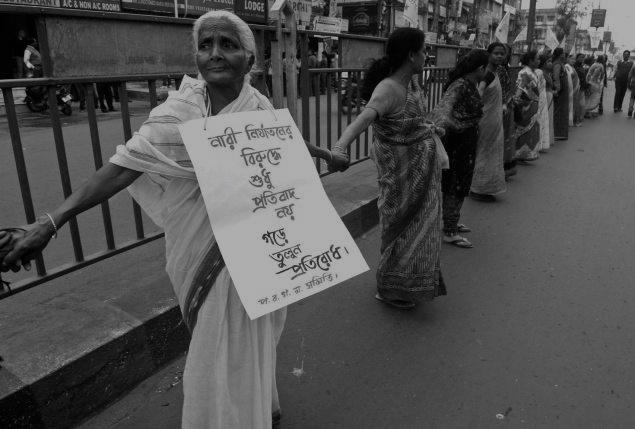 A/C & NON A/C ROOMS
LODGE
নারী নির্যাতনের
বিরুদ্ধে
শুধু
প্রতিবাদ
নয়
গড়ে
তুলুন
প্রতিরোধ।
প. ব. গ. ম. সমিতি।